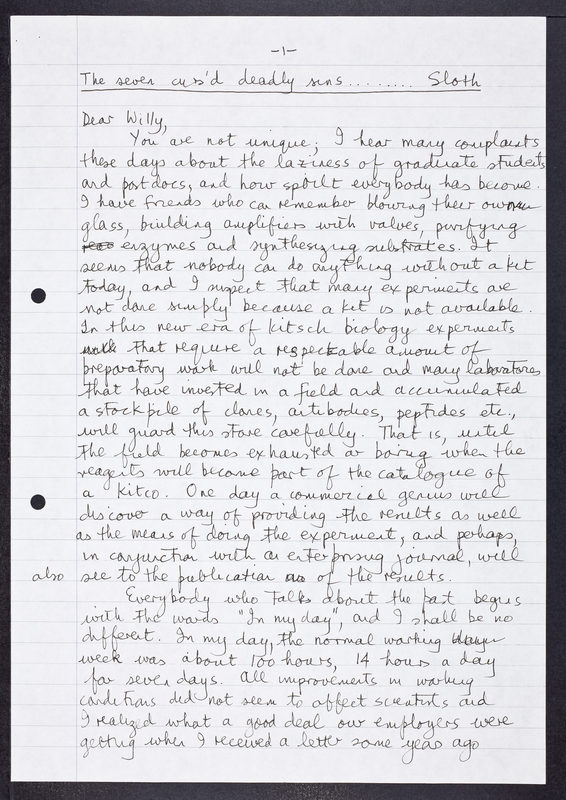 -1-
The seven cuss'd deadly sins ........ Sloth
Dear Willy,
You are not unique; I hear many complaints
these days about the laziness of graduate students
and postdocs, and how spoilt everybody has become.
I have friends who can remember blowing their own
glass, building amplifiers with valves, purifying
enzymes and synthesizing substrates. It
seems that nobody can do anything without a kit
today, and I suspect that many experiments are
not done simply because a kit is not available.
In this new era of kitsch biology experiments
that require a respectable amount of
preparatory work will not be done and many laboratories
that have invested in a field and accumulated
a stockpile of clones, antibodies, peptides etc.,
will guard this store carefully. That is, until
the field becomes exhausted or boring when the
reagents will become part of the catalogue of
a Kitco. One day a commercial genius will
discover a way of providing the results as well
as the means of doing the experiment, and perhaps,
in conjunction with an enterprising journal, will
also see to the publication of the results.
Everybody who talks about the past begins
with the words "In my day", and I shall be no
different. In my day, the normal working
week was about 100 hours, 14 hours a day
for seven days. All improvements in working
conditions did not seem to affect scientists and
I realized what a good deal our employers were
getting when I received a letter some years ago